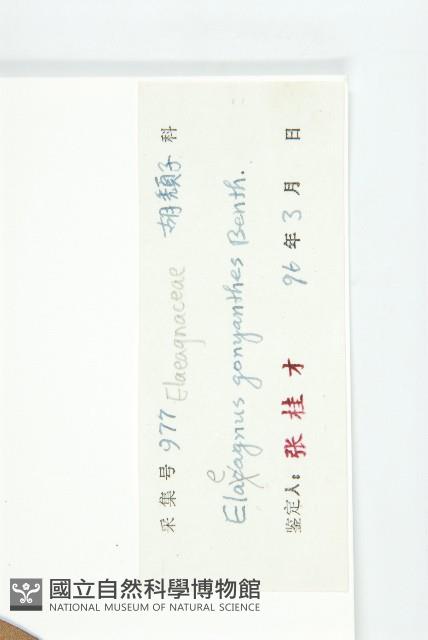 采集号 977 Elaeagnaceae 胡颓子 科
Elaeagnus gonyanthes Benth.
鉴定人: 张桂才 96 年 3 月 日
國立自然科學博物館
NATIONAL MUSEUM OF NATURAL SCIENCE